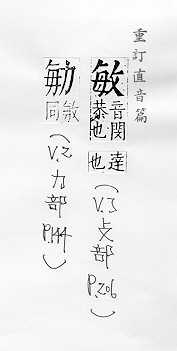 重訂直音篇
敏 音閔 恭也 達也
(V.3 攴部 P.206)
勄 同敏
(V.2 力部 P.144)